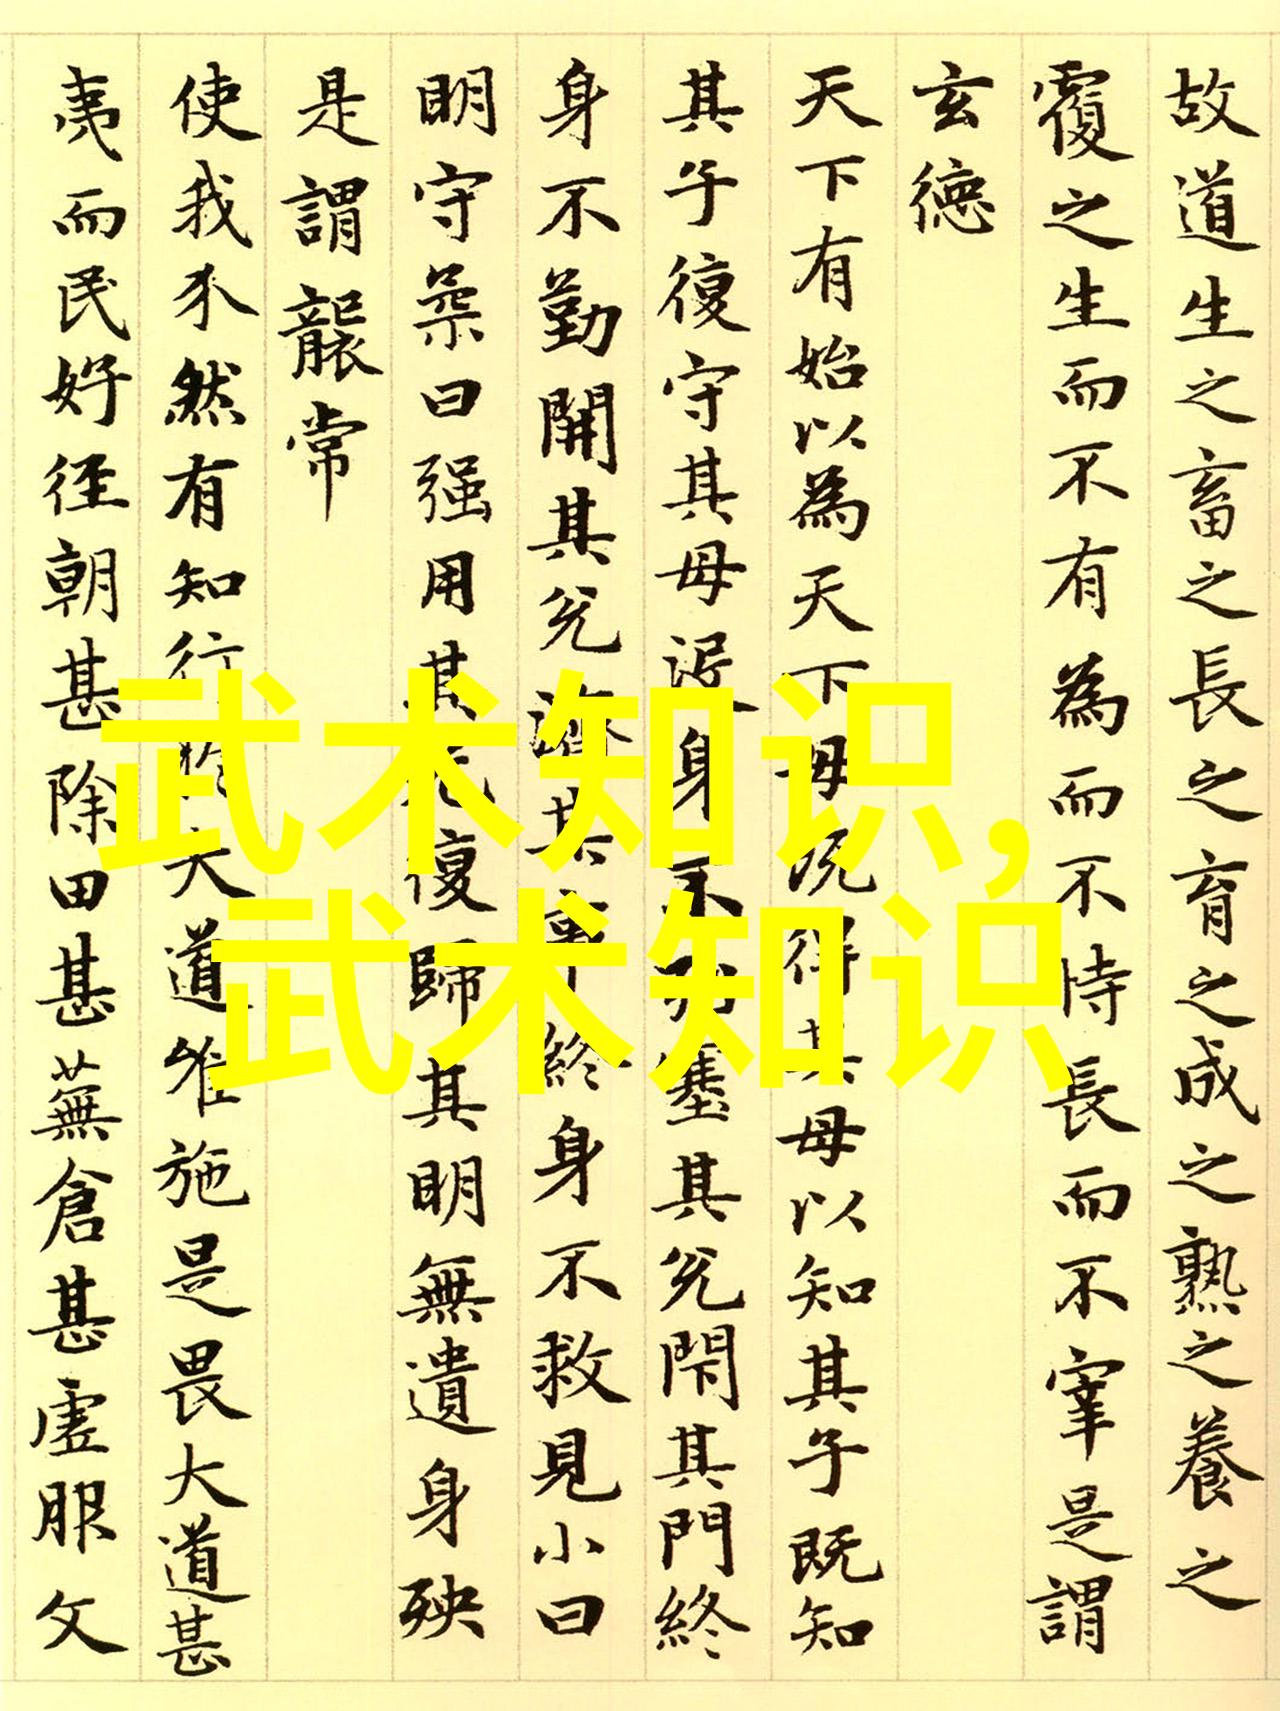 故道生之畜之長之育之成之熟之養之
覆之生而不有為而不恃長而不宰是謂
玄德
天下有始以為天下母既得其母以知其子既知
其子復守其母沒身不殆塞其兌閉其門終
身不勤開其兌濟其事終身不救見小曰
明守柔曰强用其光復歸其明無遺身殃
是謂襲常
使我介然有知行於大道唯施是畏大道甚
夷而民好徑朝甚除田甚蕪倉甚虛服文
武术知识,
武术知识